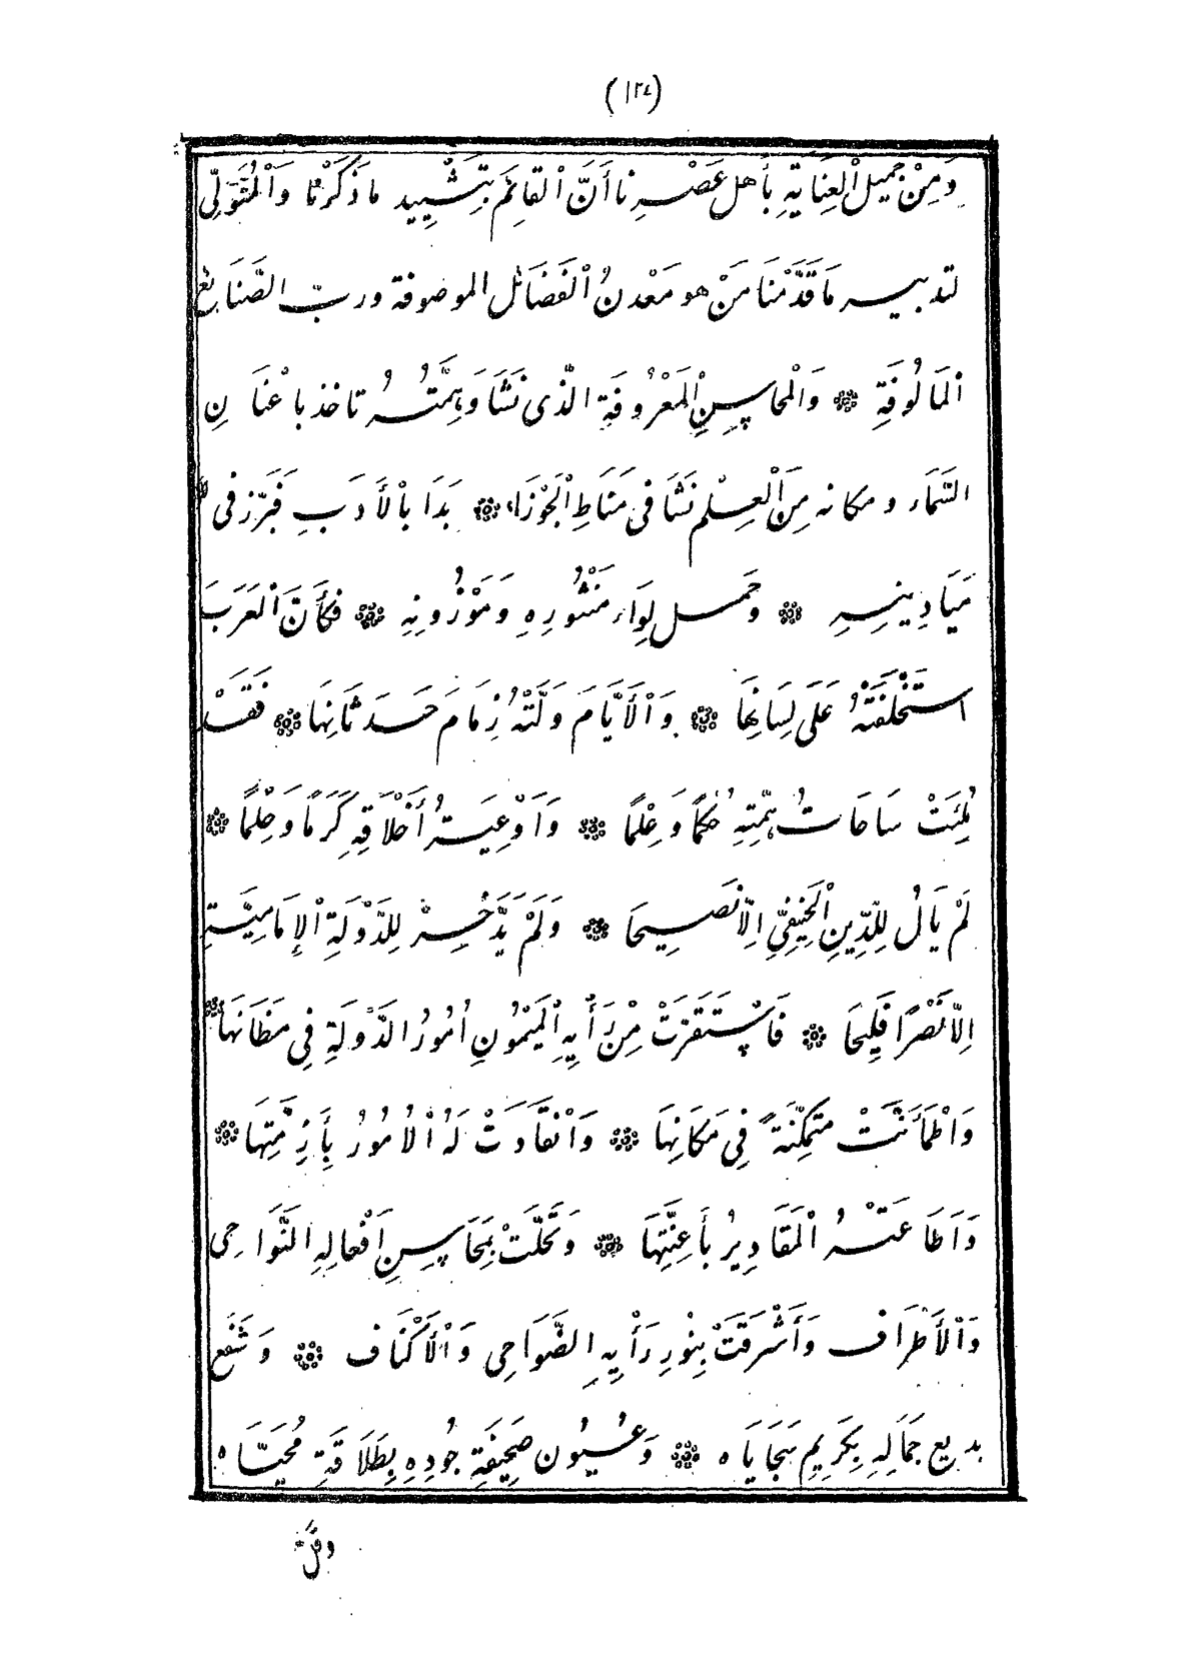 (١٢٤)
وَمِنْ جَمِيلِ ٱلعِنَايَةِ بِأَهل عَصْرِنا أَنَّ ٱلقَائِمَ بِتَشْيِيد ماذَكَرْنا وَٱلْمُتَوَلِّى
لتدبير مَا قَدَّمْنَا مَنْ هو مَعْدنُ ٱلفَضَائل الموضوفة وربّ الصَّنَايع
ٱلمَالُوفَةِ ۞ وَالْمحاسِنِ ٱلمَعْرُوفَةِ الَّذى نَشَا وَهِمَّتُهُ تاخذ باعْنَانِ
السَّمَاء ومكانه مِنَ ٱلعِلْم نَشَا فى مَنَاطِ ٱلجَوْزَاء ۞ بَدَا بالْأَدَبِ فَبَرّز فى
مَيَادِينِهِ ۞ وحَمل لِوَاء مَنْثُورِهِ وَمَوْزُونِهِ ۞ فكَأَنَّ ٱلعَرَبَ
استَخْلَفَتْهُ عَلَى لِسَانِهَا ۞ وَٱلأَيَّامَ وَلَّتْهُ زِمَامَ حَدَثَانِهَا ۞ فَقَدْ
مُلِئَتْ سَاحَاتُ هِمَّتِهِ حُكمًا وَعِلْمًا ۞ وَاَوْعِيَةُ أَخْلَاقِهِ كَرَمًا وَحِلْمًا ۞
لَمْ يَالُ لِلدِّينِ ٱلحَنِيفِىِّ اِلّا نَصِيحَا ۞ وَلَمْ يَدَّخِرْ لِلدَّوْلَةِ ٱلإِمَامِيَّةِ
اِلّا نَصْرًا فَلِيحَا ۞ فَاسْتَقَرَّتْ مِنْ رَأْيِهِ ٱلمَيْمُونِ اُمُورُ الدَّوْلَةِ فِى مظَانهَا ۞
وَاطْمَأَنَّتْ متمكِّنَةً فِى مَكَانِهَا ۞ وَٱنْقَادَتْ لَهُ ٱلاُمُورُ بِأَزِمَّتِهَا ۞
وَاَطَاعَتْهُ ٱلمَقَادِيرُ بأَعِنَّتِهَا ۞ وَتَحَلَّتْ بمَحَاسِنِ اَفْعالِهِ النَّوَاحِى
وَٱلأَطْرَاف وَأَشْرَقَتْ بِنُورِ رَأْيِهِ الضَّوَاحِى وَٱلأَكْنَاف ۞ وَشَفَع
بديع جَمَالِهِ بِكَرِيمِ سَجَايَاه ۞ وَعُيُون صَحِيفَةِ جُودِهِ بِطَلَاقَةِ مُحَيَّاه